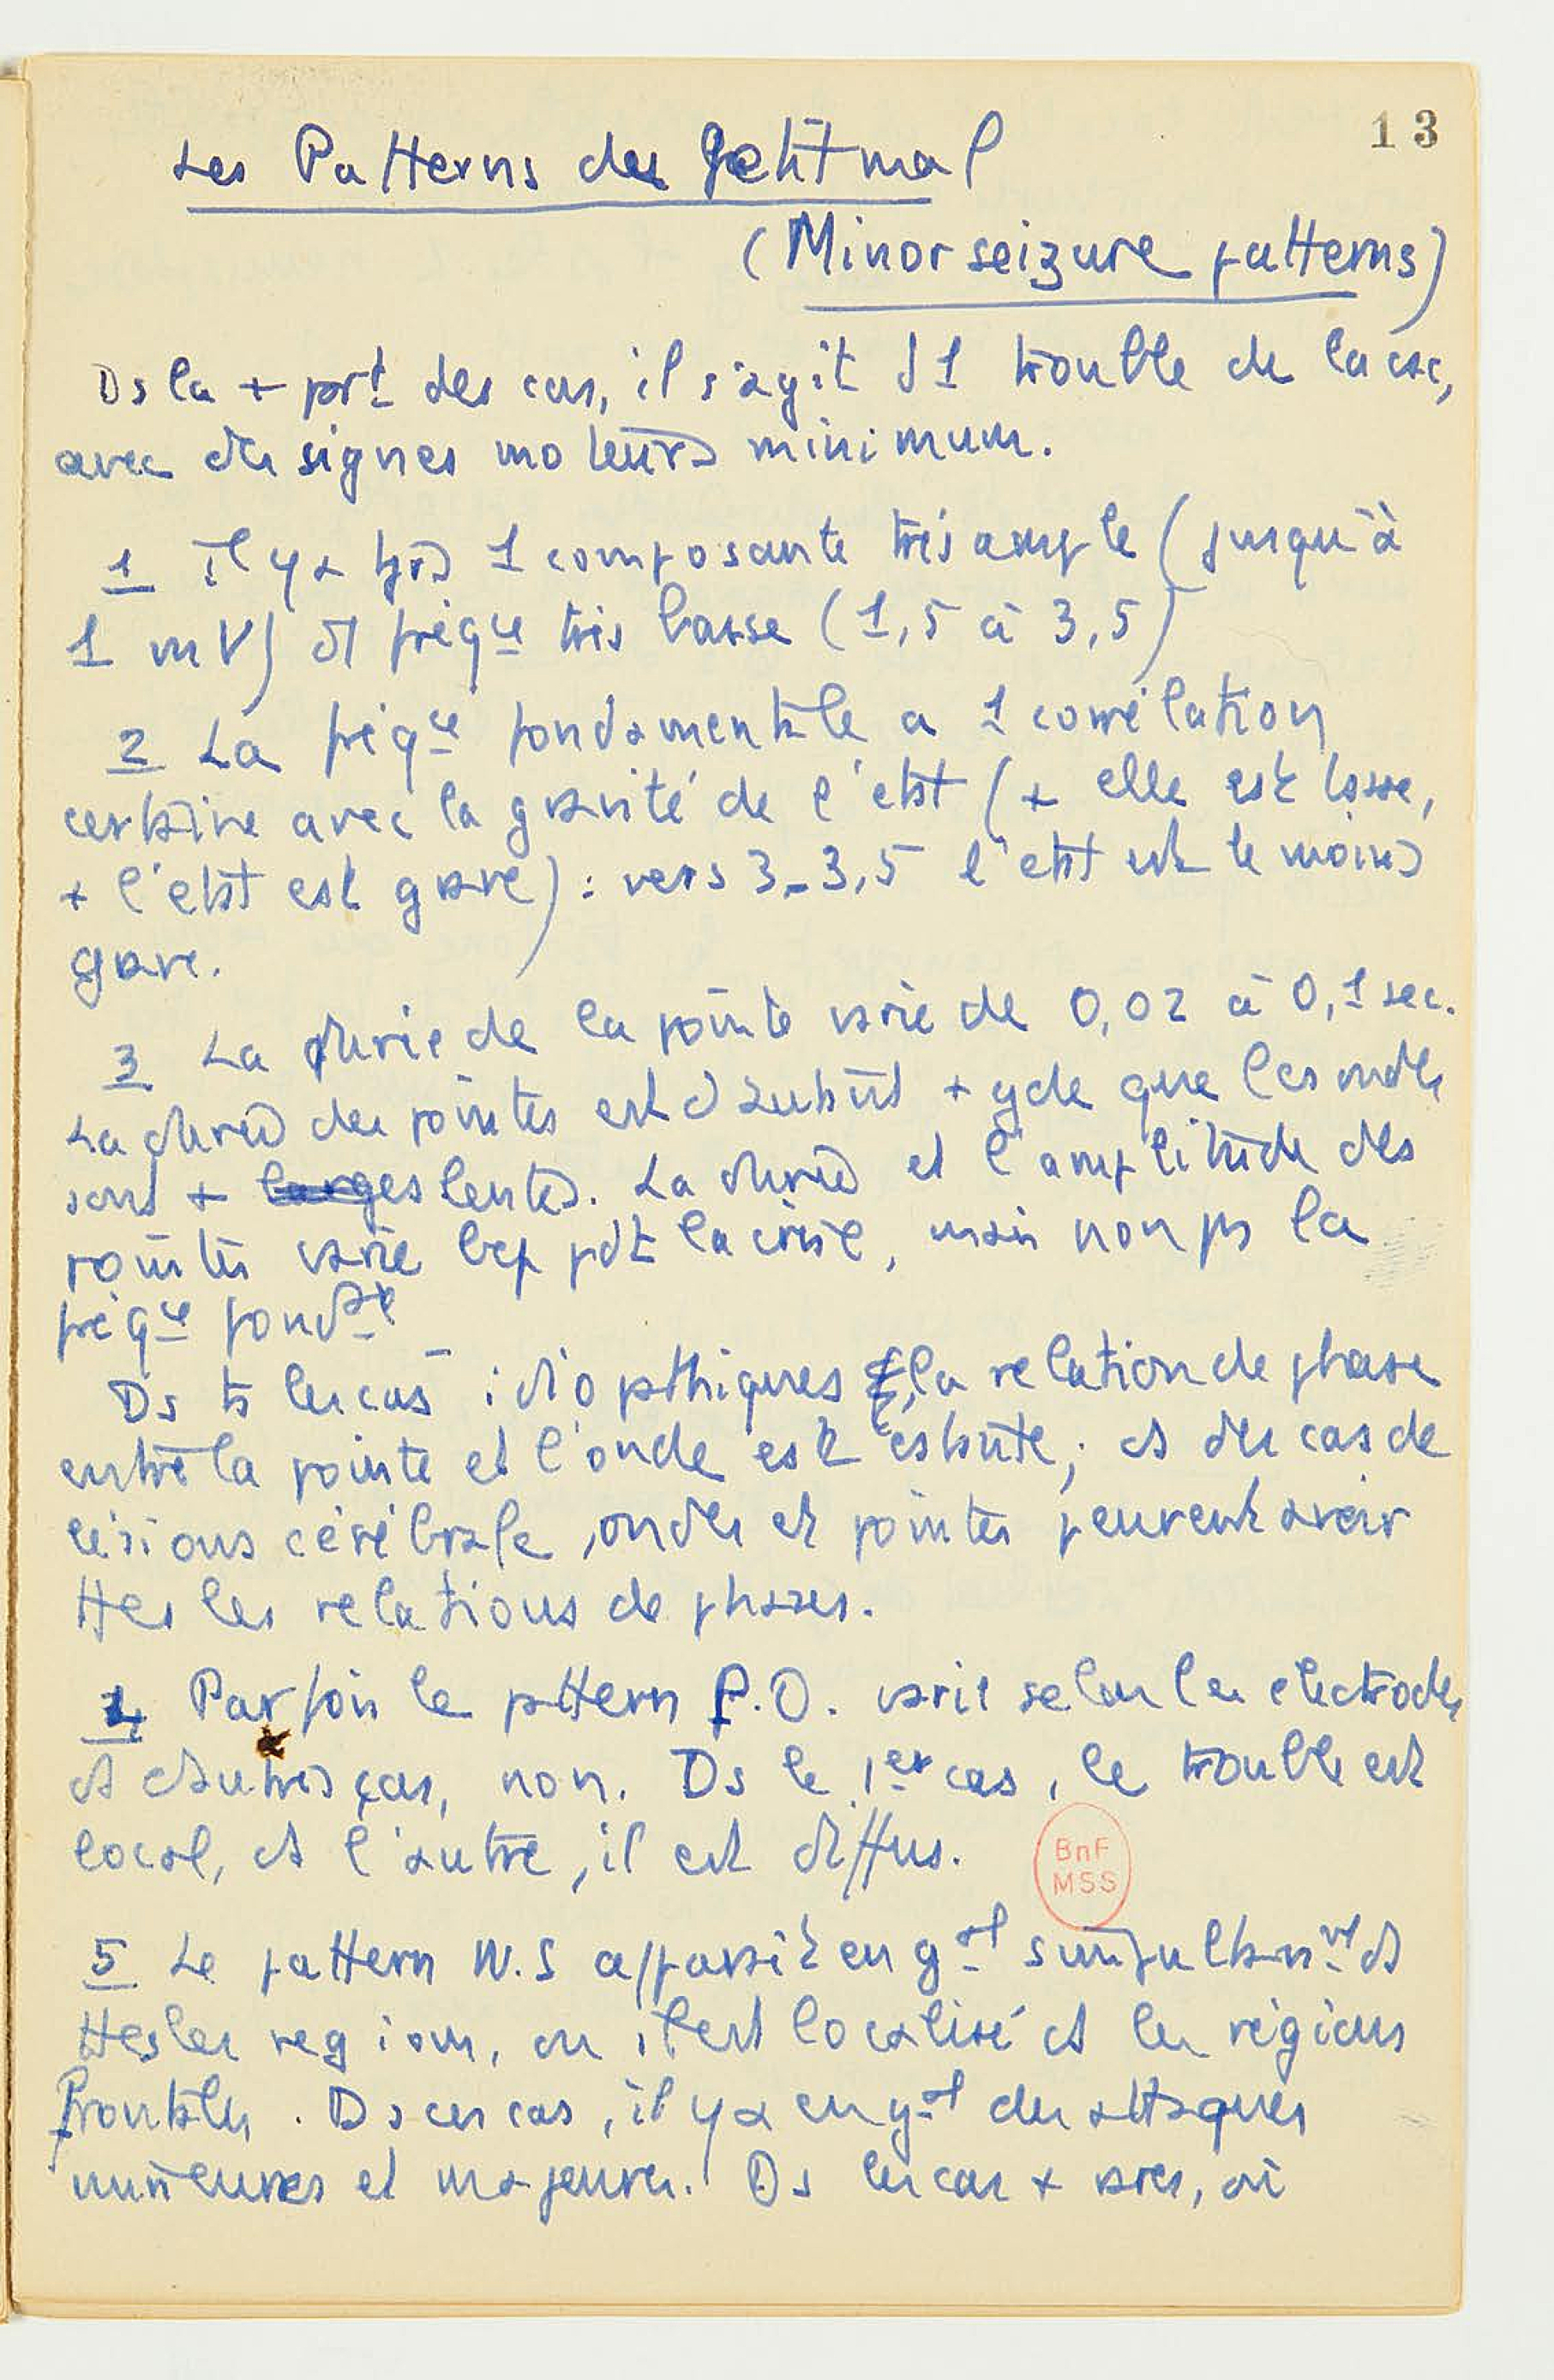 13
Les Patterns du Petit mal
(Minor seizure patterns)
Ds la + prt des cas, il s'agit d 1 trouble de la csc,
avec des signes moteurs minimum.
1 Il y a tjrs 1 composante très ample (jusqu'à
1 mV) et fréqce très basse (1,5 à 3,5)
2 La fréqce fondamentale a 1 corrélation
certaine avec la gravité de l'état (+ elle est basse,
+ l'état est grave) : vers 3-3,5 l'état est le moins
grave.
3 La durée de la pointe varie de 0,02 à 0,1 sec.
La durée des pointes est d'autant + gde que les ondes
sont + larges lentes. La durée et l'amplitude des
pointes varie bcp pdt la crise, mais non pas la
fréqce fondale
Ds ts les cas idiopathiques, la relation de phase
entre la pointe et l'onde est cstante ; ds des cas de
lésions cérébrale, ondes et pointes peuvent avoir
ttes les relations de phases.
4 Parfois le pattern P.O. varie selon les électrodes
ds d'autres cas, non. Ds le 1er cas, le trouble est
local, ds l'autre, il est diffus.
BnF
MSS
5 Le pattern W.S apparaît en gal simultanmt ds
ttes les regions, ou il est localisé ds les régions
frontales. Ds ces cas, il y a en gal des attaques
mineures et majeures. Ds les cas + rares, où